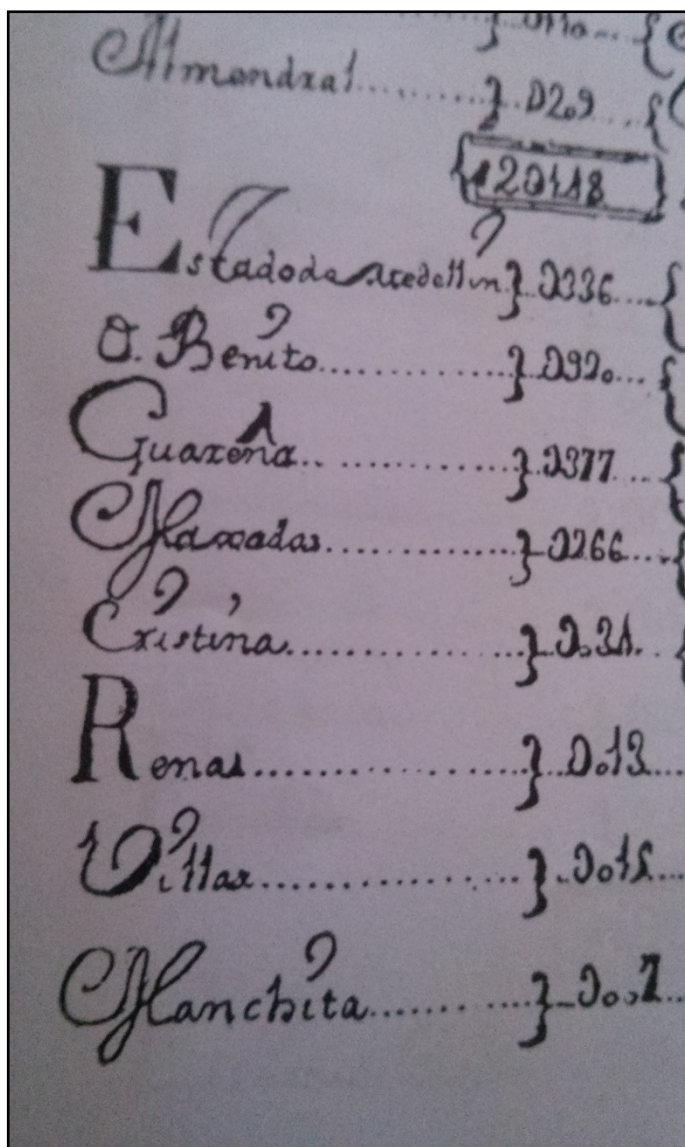 Almendral......} D29...{
{20418}
Estado de Medellin} D336....{
D. Benito............} D920...{
Guareña.. ............} D377....{
Manxadas............} D266....{
Cristina............} D.21...{
Renas............} D.013....
Villar............} D.015....
Manchita.......} D..7...